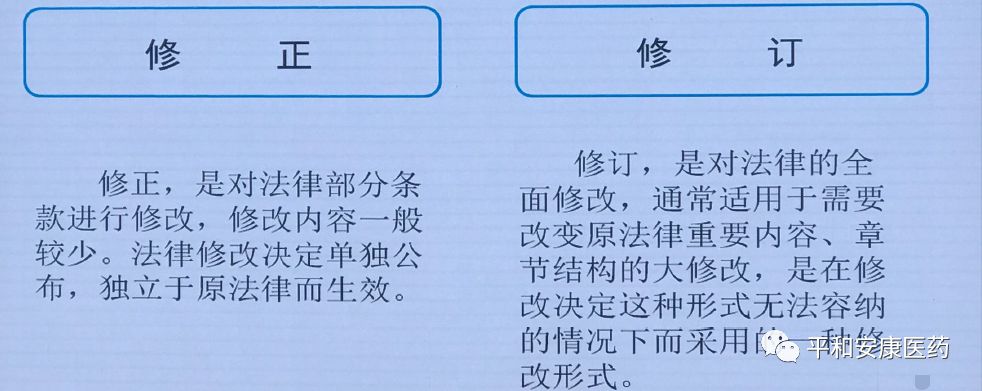 修 正
修正，是对法律部分条
款进行修改，修改内容一般
较少。法律修改决定单独公
布，独立于原法律而生效。
修 订
修订，是对法律的全
面修改，通常适用于需要
改变原法律重要内容、章
节结构的大修改，是在修
改决定这种形式无法容纳
的情况下而采用的一种修
改形式。
平和安康医药